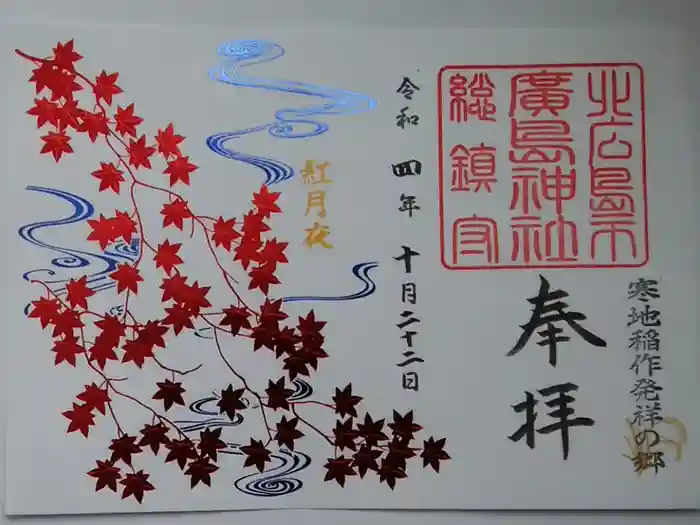 北広島市
廣島神社
総鎮守
寒地稲作発祥の郷
奉拝
令和四年十月二十二日
紅月夜